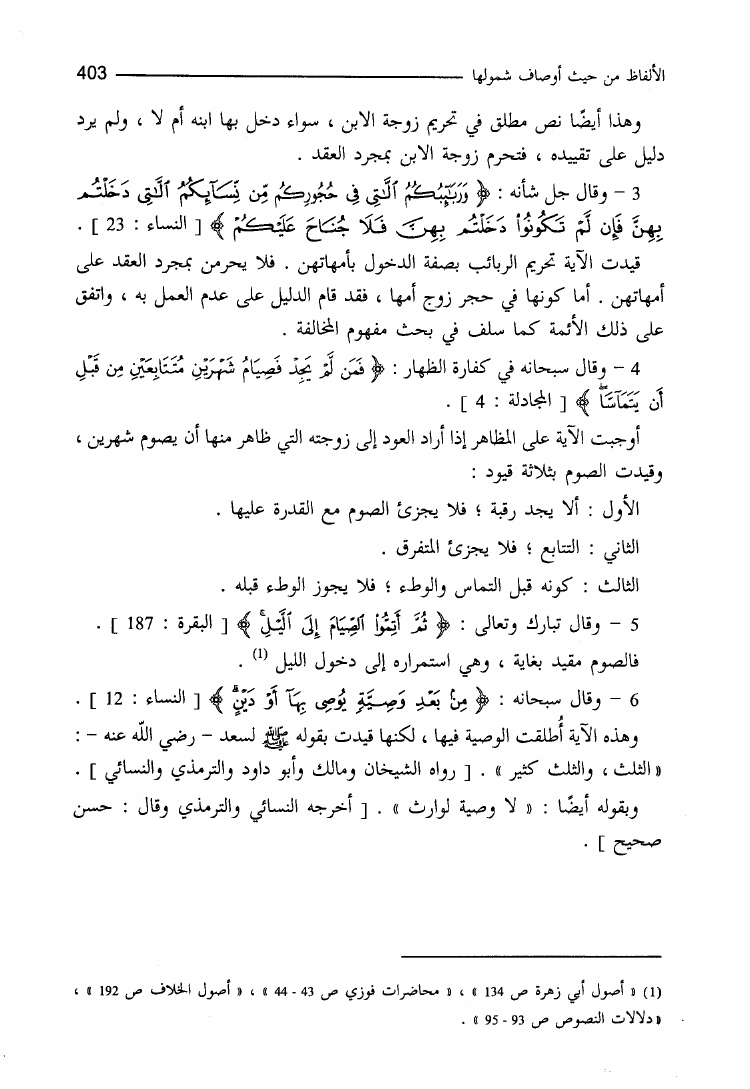 الألفاظ من حيث أوصاف شمولها 403
وهذا أيضًا نص مطلق في تحريم زوجة الابن ، سواء دخل بها ابنه أم لا ، ولم يرد
دليل على تقييده ، فتحرم زوجة الابن بمجرد العقد .
3 – وقال جل شأنه : ﴿ وَرَبَٰٓئِبُكُمُ ٱلَّٰتِى فِى حُجُورِكُم مِّن نِّسَآئِكُمُ ٱلَّٰتِى دَخَلْتُم
بِهِنَّ فَإِن لَّمْ تَكُونُوا۟ دَخَلْتُم بِهِنَّ فَلَا جُنَاحَ عَلَيْكُمْ ﴾ [ النساء : 23 ] .
قيدت الآية تحريم الربائب بصفة الدخول بأمهاتهن . فلا يحرمن بمجرد العقد على
أمهاتهن . أما كونها في حجر زوج أمها ، فقد قام الدليل على عدم العمل به ، واتفق
على ذلك الأئمة كما سلف في بحث مفهوم المخالفة .
4 – وقال سبحانه في كفارة الظهار : ﴿ فَمَن لَّمْ يَجِدْ فَصِيَامُ شَهْرَيْنِ مُتَتَابِعَيْنِ مِن قَبْلِ
أَن يَتَمَآسَّا ﴾ [ المجادلة : 4 ] .
أوجبت الآية على المظاهر إذا أراد العود إلى زوجته التي ظاهر منها أن يصوم شهرين ،
وقيدت الصوم بثلاثة قيود :
الأول : ألا يجد رقبة ؛ فلا يجزئ الصوم مع القدرة عليها .
الثاني : التتابع ؛ فلا يجزئ المتفرق .
الثالث : كونه قبل التماس والوطء ؛ فلا يجوز الوطء قبله .
5 – وقال تبارك وتعالى : ﴿ ثُمَّ أَتِمُّوا۟ ٱلصِّيَامَ إِلَى ٱلَّيْلِ ﴾ [ البقرة : 187 ] .
فالصوم مقيد بغاية ، وهي استمراره إلى دخول الليل (1) .
6 – وقال سبحانه : ﴿ مِنۢ بَعْدِ وَصِيَّةٍ يُوصِى بِهَآ أَوْ دَيْنٍ ﴾ [ النساء : 12 ] .
وهذه الآية أُطلقت الوصية فيها ، لكنها قيدت بقوله ﷺ لسعد – رضي الله عنه – :
« الثلث ، والثلث كثير » . [ رواه الشيخان ومالك وأبو داود والترمذي والنسائي ] .
وبقوله أيضًا : « لا وصية لوارث » . [ أخرجه النسائي والترمذي وقال : حسن
صحيح ] .
(1) « أصول أبي زهرة ص 134 » ، « محاضرات فوزي ص 43 - 44 » ، « أصول الخلاف ص 192 » ،
« دلالات النصوص ص 93 - 95 » .